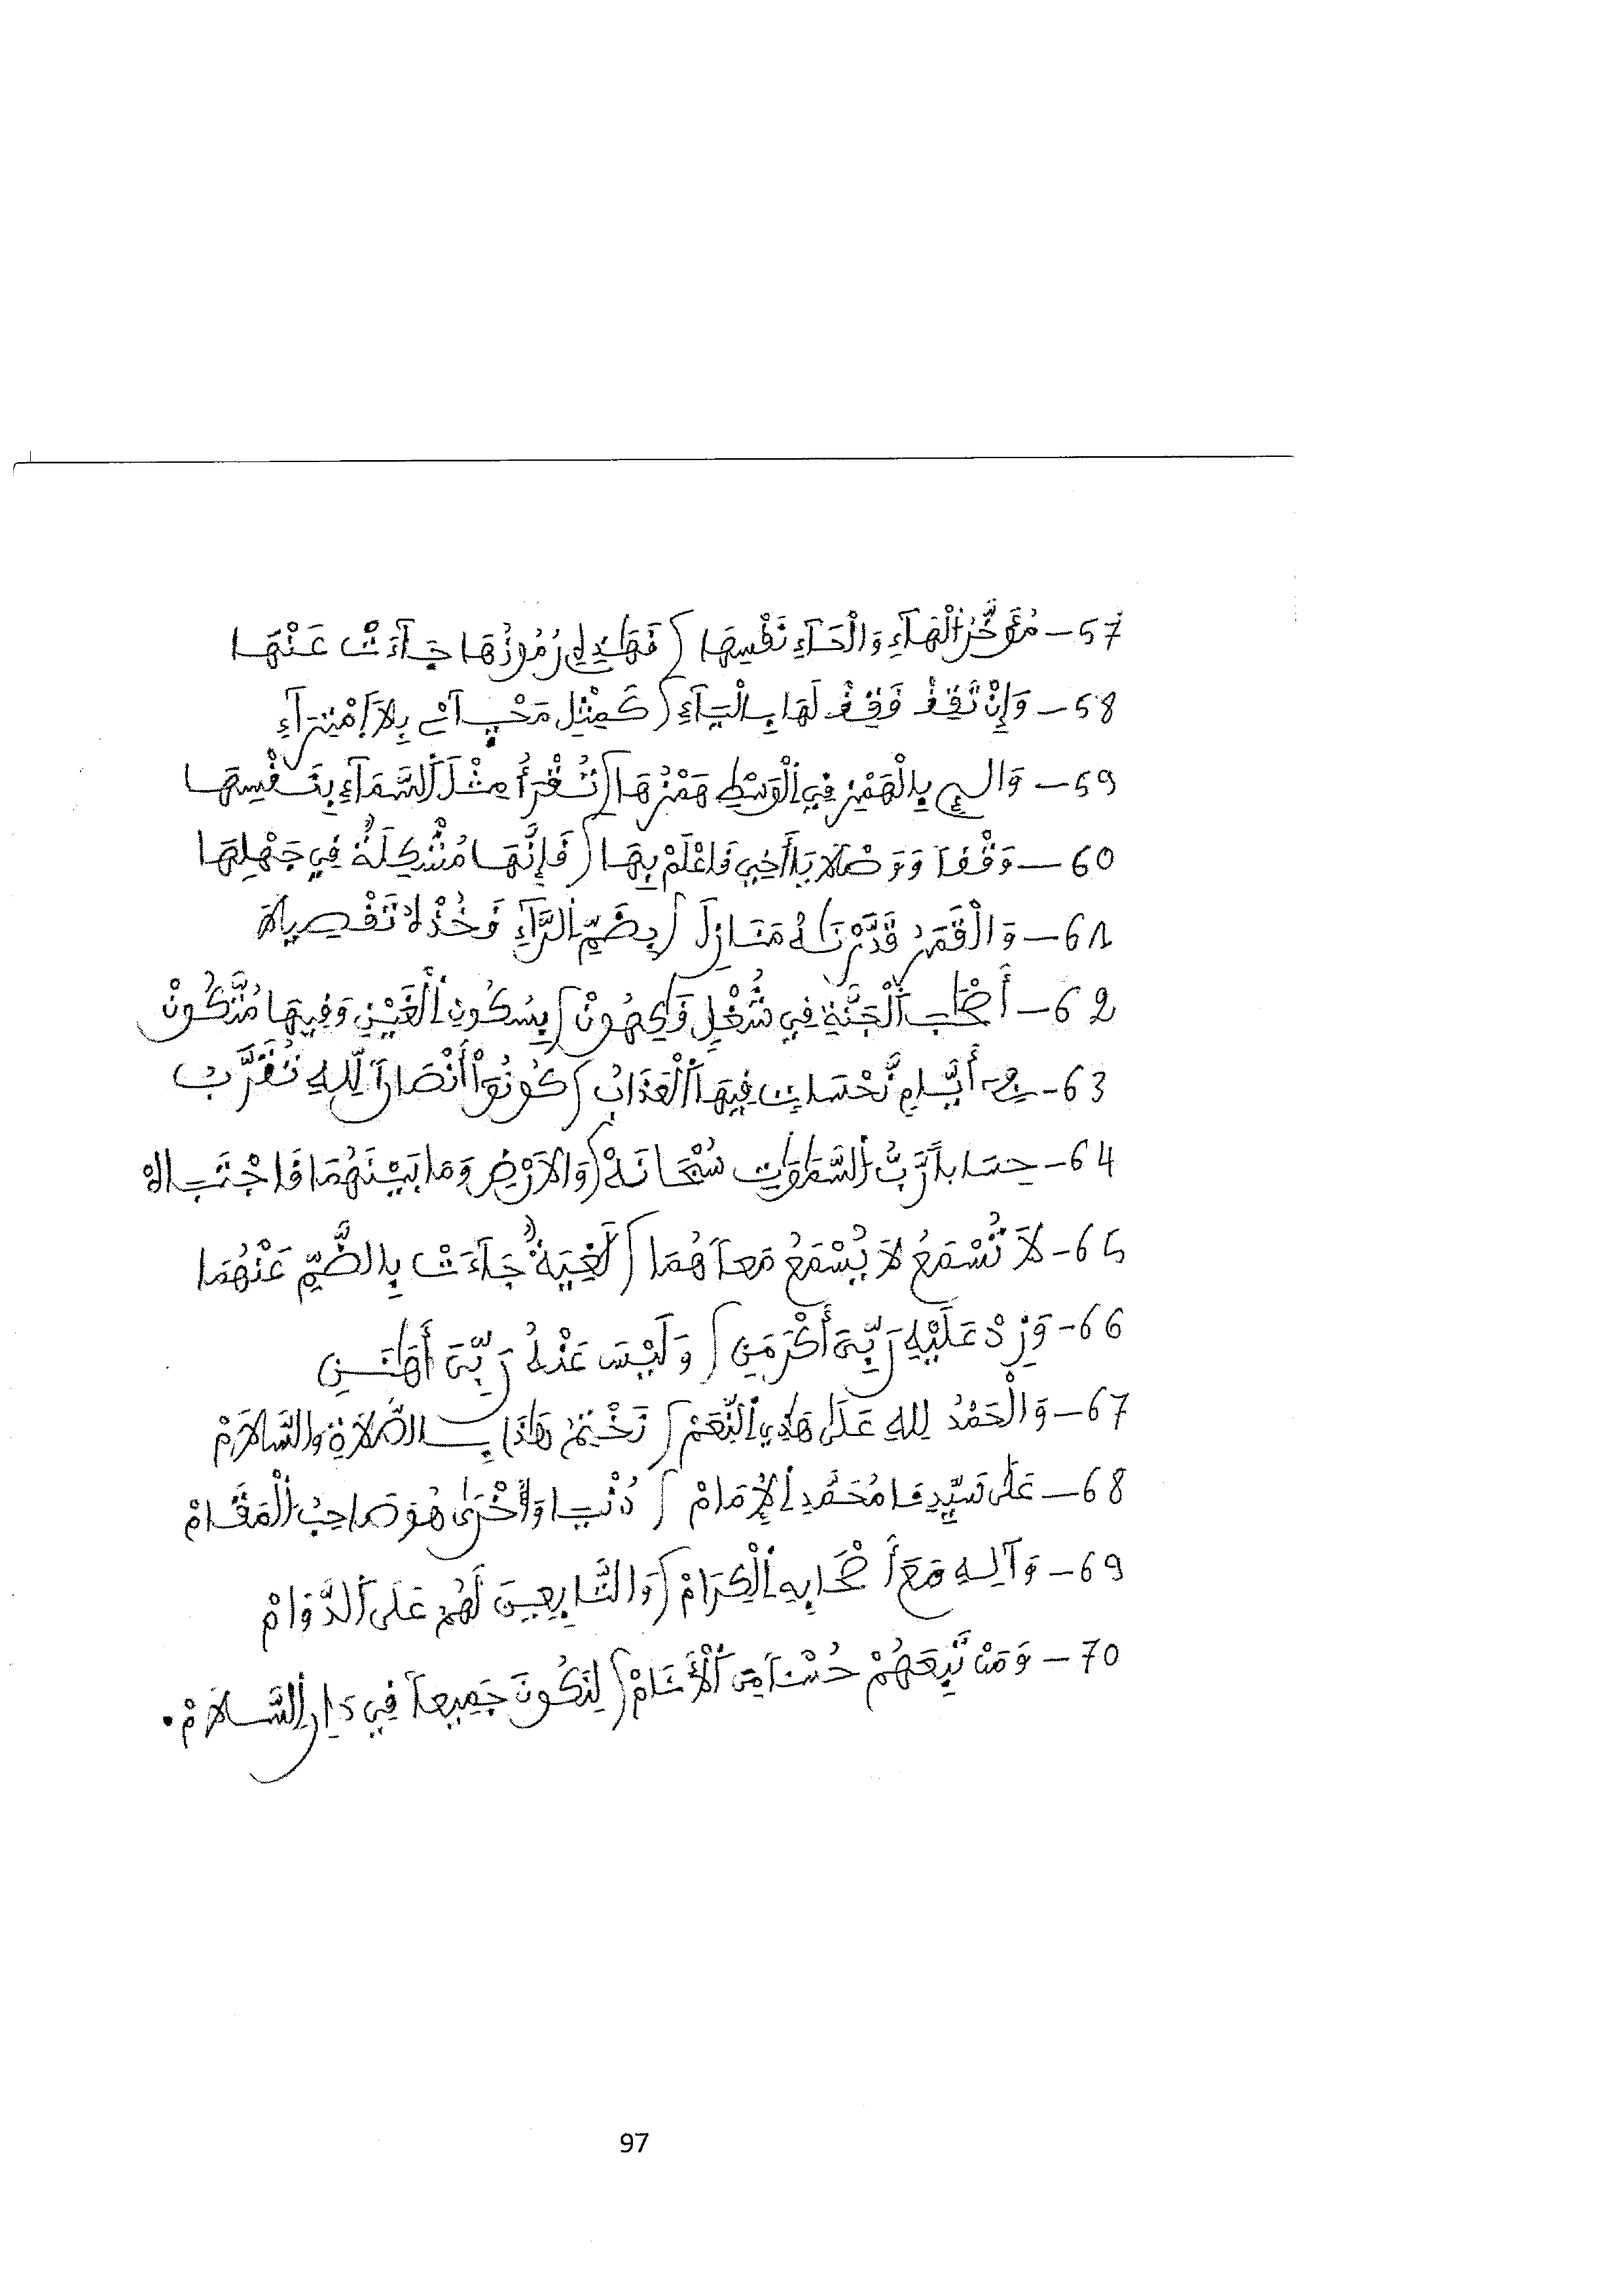 57 – مُؤَخَّرُ اَلْهَآءِ وَالْحَآءِ نَفْسِهَا / فَهَاذِهِ رُمُوزُهَا جَآءَتْ عَنْهَا
58 – وَإِنْ تَقِفْ فَقِفْ لَهَا بِالْيَآءِ / كَمِثْلِ مَحْيِآىْ بِلاَ اَمْتِرَآءِ
59 – وَالىِ بِالْهَمْزِ فِي اِلْوَسْطِ هَمْزُهَا / تُقْرَأُ مِثْلَ اَلسَّمَآءِ بِنَفْسِهَا
60 – وَقْفاً وَوَصْلاً يَا أَخِي فَاعْلَمْ بِهَا / فَإِنَّهَا مُشْكِلَةٌ فِي جَهْلِهَا
61 – وَالْقَمَرُ قَدَّرْنَاهُ مَنَازِلَ / بِضَمِّ اِلرَّآءِ وَخُذْهُ تَفْصِيلاً
62 – أَصْحَابَ اَلْجَنَّةِ فِي شُغْلٍ فَاكِهُونْ / بِسُكُونِ اِلْغَيْنِ وَفِيهَا مُتَّكُونْ
63 – أَيَّامٍ نَّحْسَاتٍ فِيهَا اَلْعَذَابُ / كُونُوا أَنْصَاراً لِّلهِ تُقَرَّبُ
64 – حِسَاباً رَّبُّ اُلسَّمَاوَاتِ سُبْحَانَهْ / وَالاَرْضِ وَمَا بَيْنَهُمَا فَاجْتَبَاهْ
65 – لاَ تُسْمَعُ لاَ يُسْمَعُ مَعاً هُمَا / لَغِيَةٌ جَآءَتْ بِالضَّمِّ عَنْهُمَا
66 – وَزِدْ عَلَيْهِ رَبِّيَ أَكْرَمَنِ / وَلَيْسَ عَنْهُ رَبِّيَ أَهَانَنِ
67 – وَالْحَمْدُ لِلهِ عَلَى هَذِي اِلنِّعَمْ / نَخْتِمُ هَاذَا بِالصَّلاَةِ وَالسَّلاَمْ
68 – عَلَى سَيِّدِنَا مُحَمَّدِ اِلإِمَامْ / دُنْيَا وَأُخْرَى هُوَ صَاحِبُ اُلْمَقَامْ
69 – وَآلِهِ مَعَ أَصْحَابِهِ اِلْكِرَامْ / وَالتَّابِعِينَ لَهُمْ عَلَى اَلدَّوَامْ
70 – وَمَنْ تَبِعَهُمْ حُسْناً مِنَ اَلأَنَامْ / لِنَكُونَ جَمِيعاً فِي دَارِ اِلسَّلاَمْ.
97